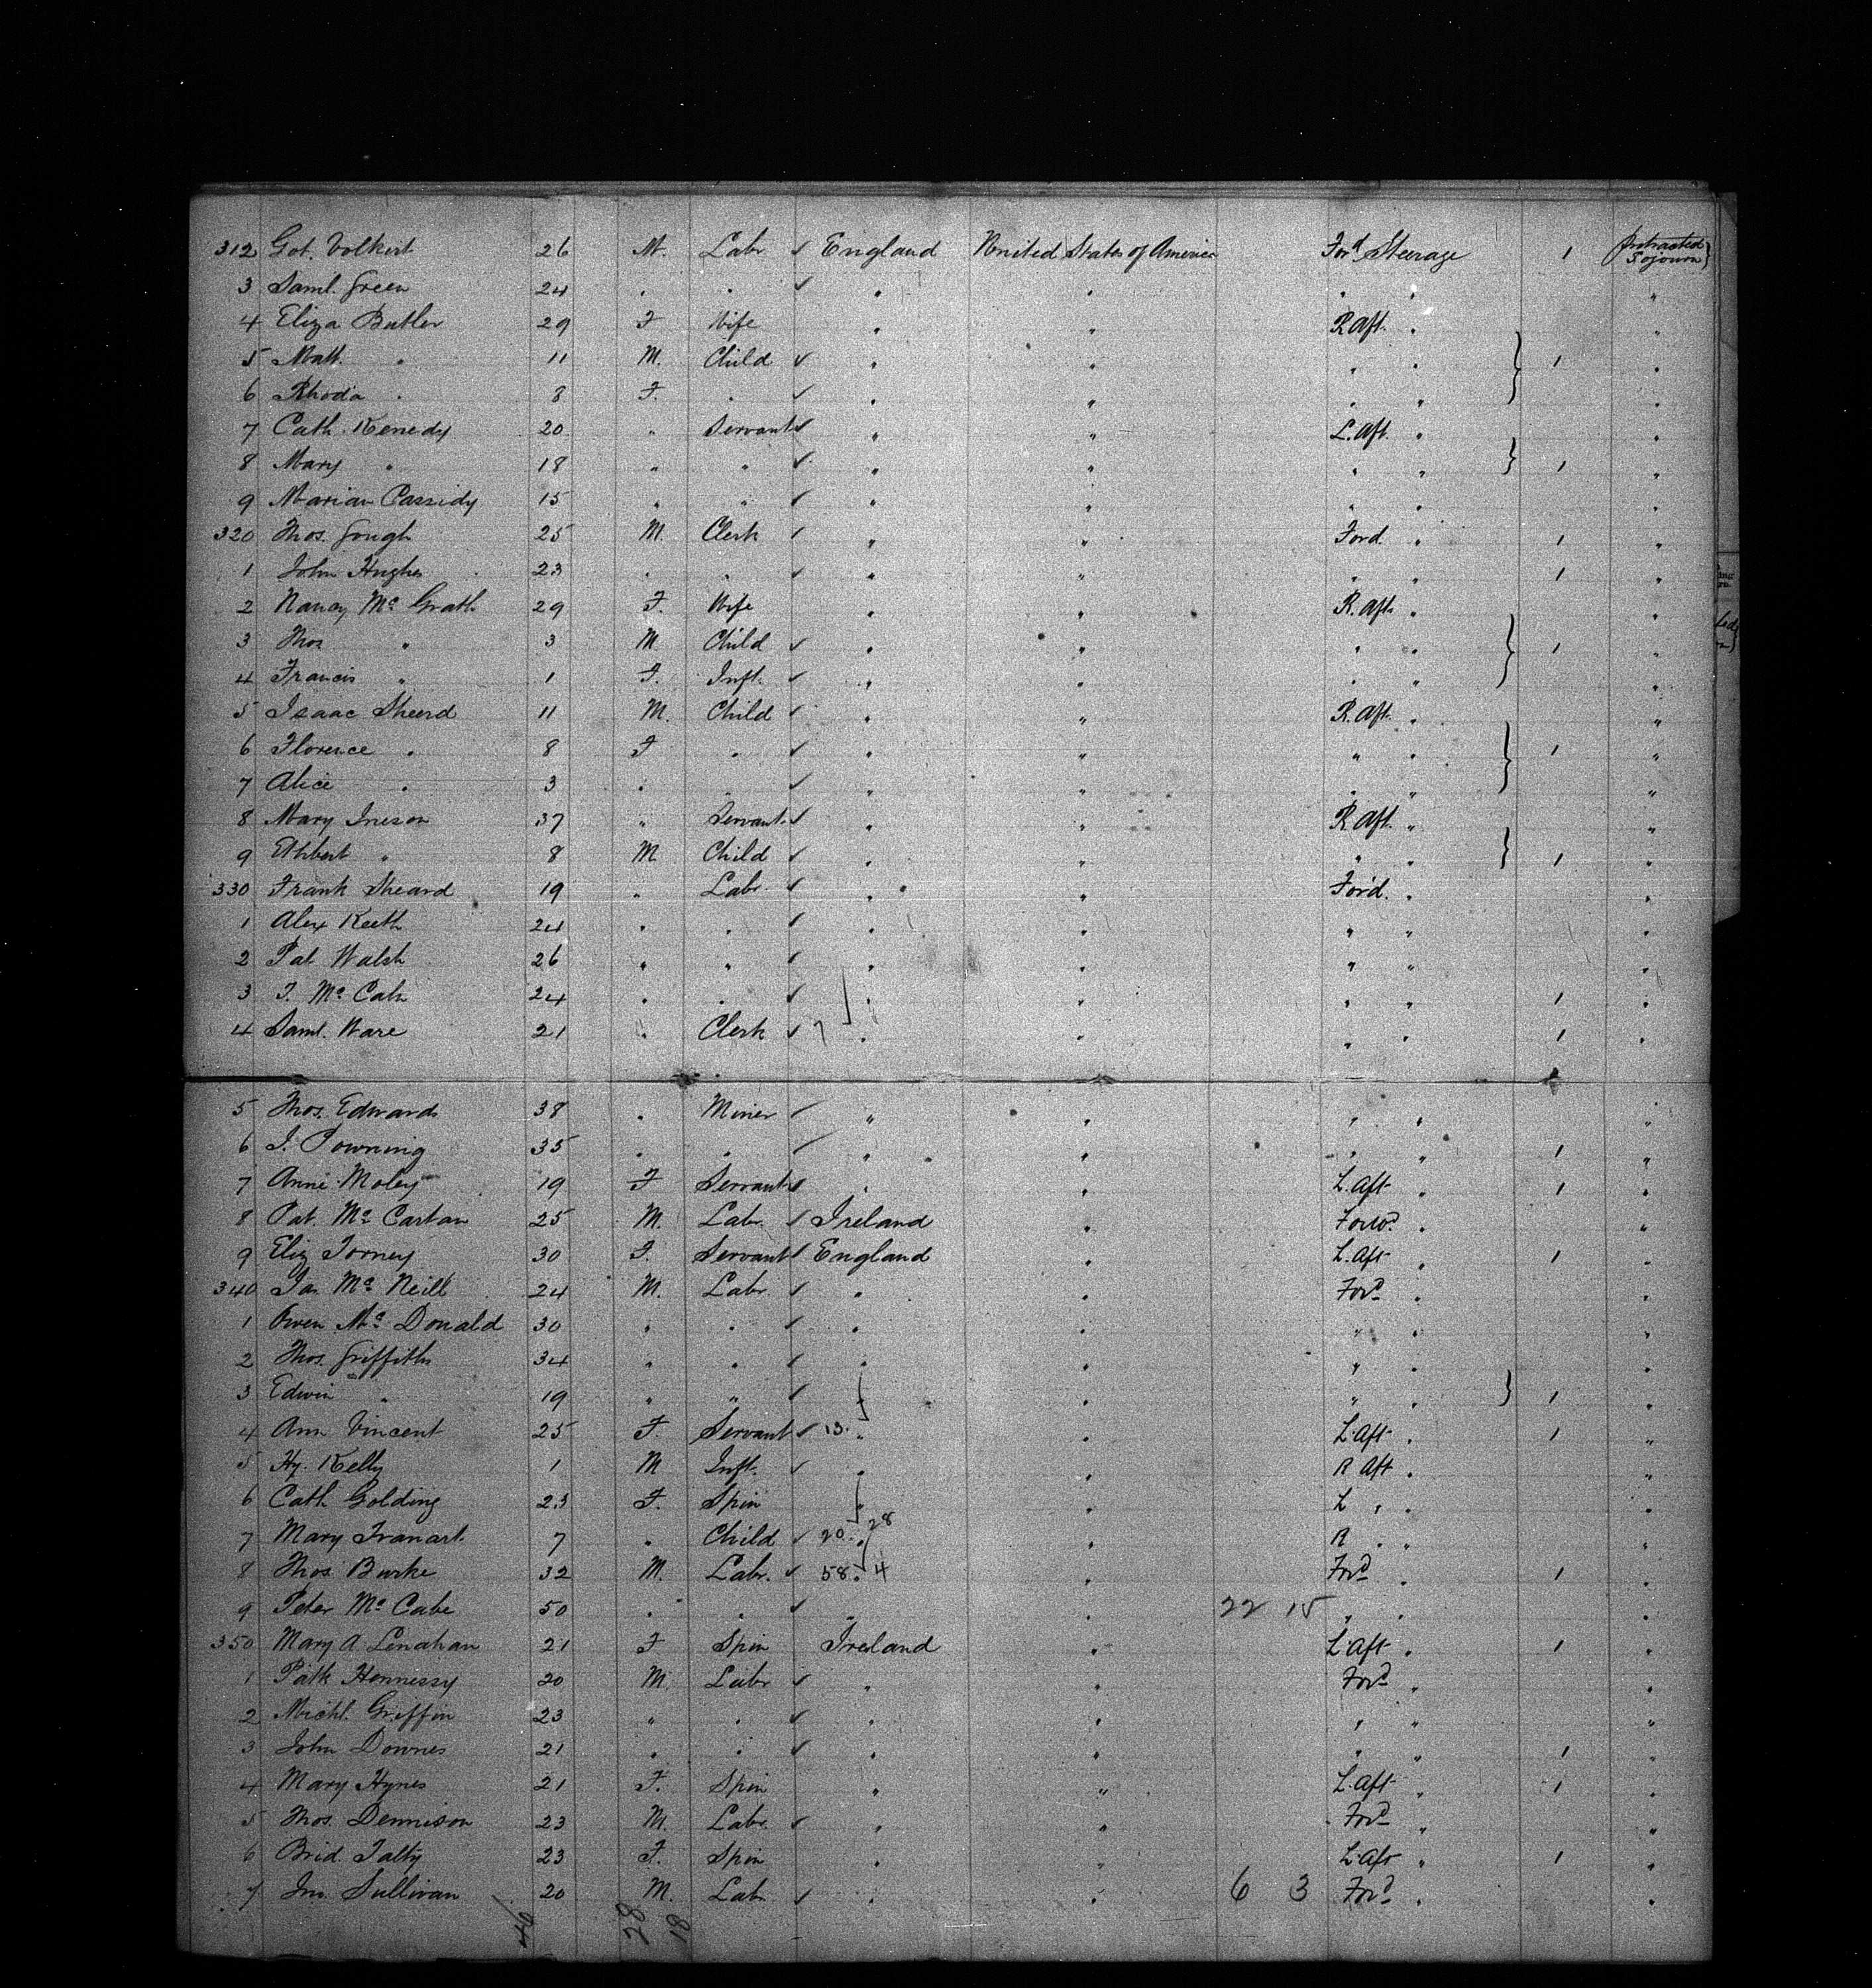 312 Got. Volkert 26 M. Labr ✓ England United States of America For'd Steerage 1 protracted Sojourn }
3 Saml. Green 24 " " ✓ " " " " "
4 Eliza Butler 29 F Wife " " R Aft. " "
5 Matt. " 11 M. Child ✓ " " " " } 1 "
6 Rhoda " 8 F. " ✓ " " " " "
7 Cath. Kenedy 20 " Servant ✓ " " L. Aft. " "
8 Mary " 18 " " ✓ " " " " } 1 "
9 Marian Cassidy 15 " " ✓ " " " " "
320 Thos. Gough 25 M. Clerk ✓ " " Ford. " 1 "
1 John Hughes 23 " " ✓ " " " " 1 "
2 Nancy Mc Grath 29 F. Wife " " R. Aft. " "
3 Thos " 3 M Child ✓ " " " " } 1 "
4 Francis " 1 F. Inft. ✓ " " " " "
5 Isaac Sheerd 11 M. Child ✓ " " R. Aft. " "
6 Florence " 8 F " ✓ " " " " } 1 "
7 Alice " 3 " " ✓ " " " " "
8 Mary Ineson 37 " Servant ✓ " " R Aft. " "
9 Ethbert " 8 M Child ✓ " " " " } 1 "
330 Frank Sheard 19 " Labr ✓ " " For'd. " "
1 Alex Keith 24 " " ✓ " " " " "
2 Pat Walsh 26 " " ✓ " " " " "
3 T. Mc Cabe 24 " " ✓ " " " " 1 "
4 Saml. Ware 21 " Clerk ✓ 7 " " " " 1 "
5 Thos. Edwards 38 " Miner ✓ " " " " "
6 I. Powning 35 " " ✓ " " " " 1 "
7 Anne Moley 19 F Servant ✓ " " L. Aft " 1 "
8 Pat. Mc Cartan 25 M. Labr. ✓ Ireland " Forwd. " "
9 Eliz Torney 30 F. Servant ✓ England " L. Aft " 1 "
340 Jas. Mc Neill 24 M. Labr. ✓ " " Ford " "
1 Owen Mc Donald 30 " " ✓ " " " " "
2 Thos. Griffiths 34 " " ✓ " " " " "
3 Edwin " 19 " " ✓ " " " " } 1 "
4 Ann Vincent 25 F. Servant ✓ 13. " " L. Aft " 1 "
5 Hy. Kelly 1 M Inft. ✓ " " R Aft " "
6 Cath Golding 23 F. Spin " " L " " "
7 Mary 7 " Child ✓ 20. " 28 " R " " "
8 Thos Burke 32 M. Labr. ✓ 58. " 4 " Ford " 1 "
9 Peter Mc Cabe 50 " " ✓ " " 22 15 " " "
350 Mary A Lenahan 21 F Spin Ireland " L. Aft " 1 "
1 Patk Hennessy 20 M. Labr ✓ " " Ford " "
2 Michl. Griffin 23 " " ✓ " " " " "
3 John Downes 21 " " ✓ " " " " 1 "
4 Mary Hynes 21 F. Spin " " L. Aft " 1 "
5 Thos. Dennison 23 M. Labr. ✓ " " Ford " "
6 Brid. Talty 23 F. Spin " " L. Aft " 1 "
7 Jno. Sullivan 20 M. Labr ✓ " " 6 3 Ford " "
40 28 18